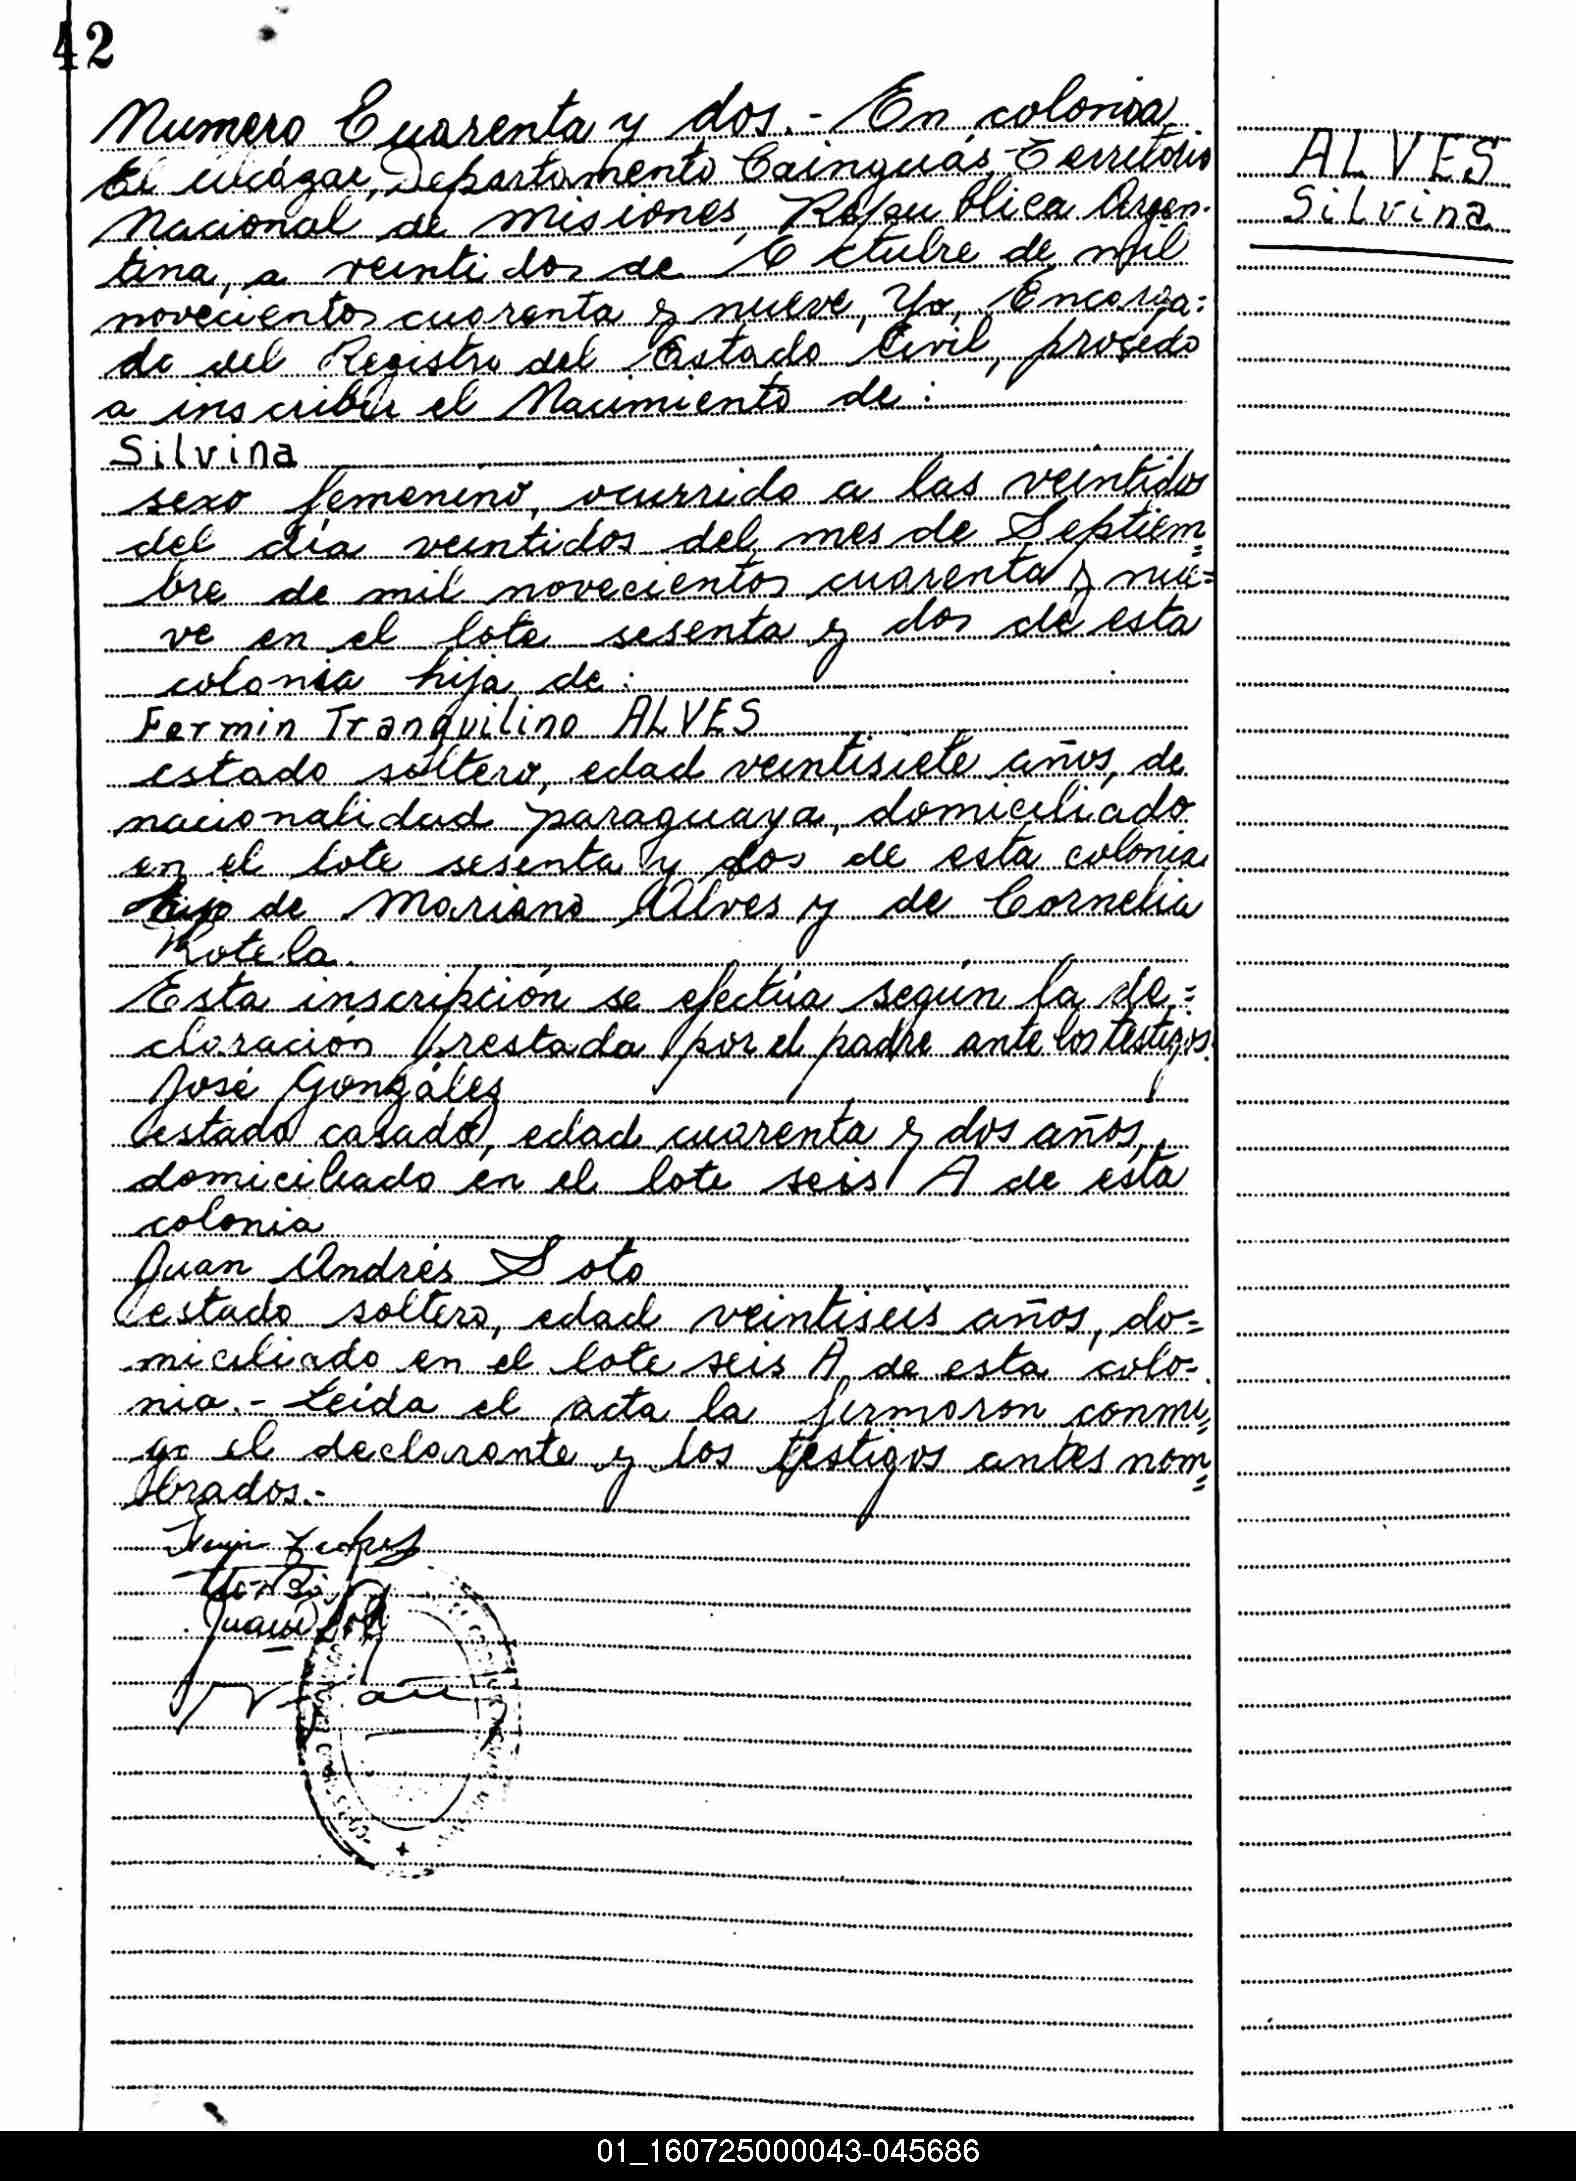 42
Numero Cuarenta y dos.- En colonia
El Alcázar, Departamento Cainguás, Territorio
Nacional de Misiones, Republica Argen-
tina, a veintidos de Octubre de mil
novecientos cuarenta y nueve, Yo, Encarga=
do del Registro del Estado Civil, procedo
a inscribir el Nacimiento de:
Silvina
sexo femenino, ocurrido a las veintidos
del día veintidos del mes de Septiem=
bre de mil novecientos cuarenta y nue=
ve en el lote sesenta y dos de esta
colonia hija de:
Fermin Tranquilino ALVES
estado soltero, edad veintisiete años, de
nacionalidad paraguaya, domiciliado
en el lote sesenta y dos de esta colonia
hijo de Mariano Alves y de Cornelia
Rotela.
Esta inscripción se efectúa según la de=
claración prestada por el padre ante los testigos.
José González
estado casado, edad cuarenta y dos años,
domiciliado en el lote seis A de esta
colonia
Juan Andrés Soto
estado soltero, edad veintiseis años, do=
miciliado en el lote seis A de esta colo=
nia.- Leída el acta la firmaron conmi=
go el declarante y los testigos antes nom=
brados.-
ALVES
Silvina
01_160725000043-045686